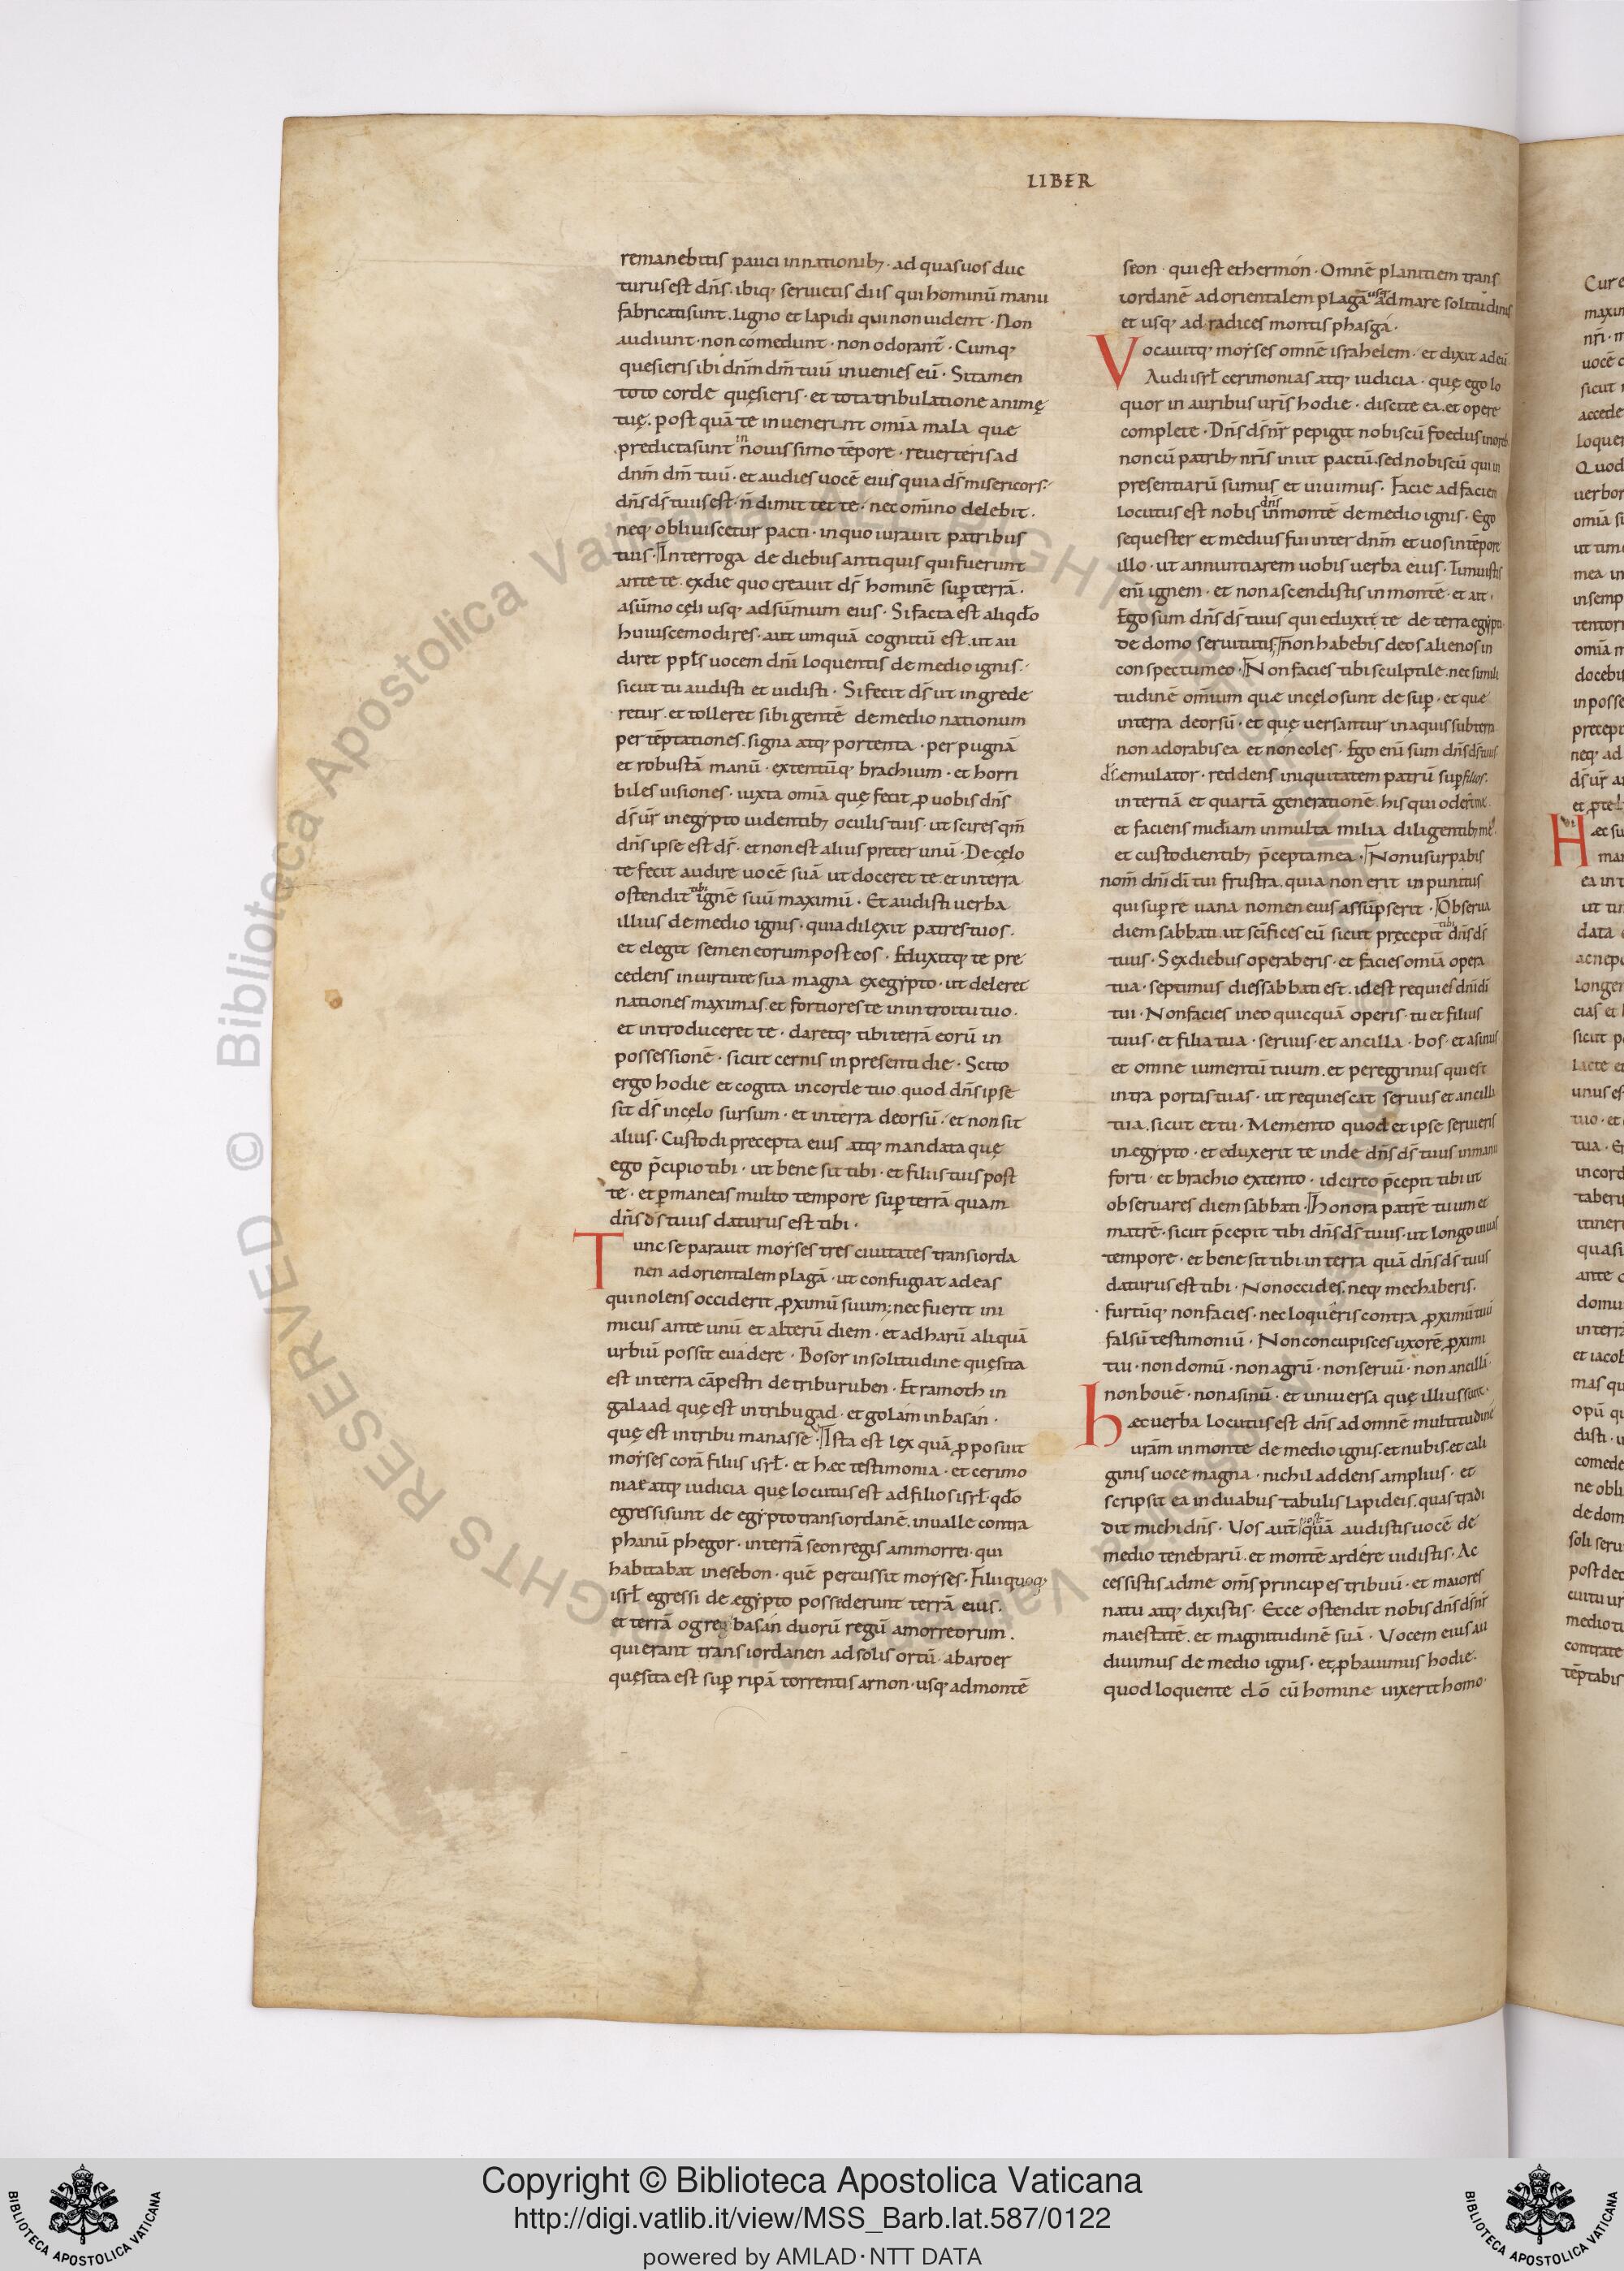 LIBER
remanebitis pauci in nationib; · ad quas uos duc
turus est dn̄s · ibiq; seruietis diis qui hominū manu
fabricati sunt . ligno et lapidi qui non uident · Non
audiunt · non comedunt · non odorant̄ · Cumq;
quesieris ibi dn̄m dm̄ tuū inuenies eū · Si tamen
toto corde quęsieris · et tota tribulatione animę
tuę . post quā te inuenerint omīa mala quę
predicta sunt in nouissimo tēpore · reuerteris ad
dnm̄ dm̄ tuū · et audies uocē eius quia ds̄ misericors ·
dn̄s ds̄ tuus est · n̄ dimittet te · nec om̄ino delebit .
neq; obliuiscetur pacti · in quo iurauit patribus
tuis · Interroga de diebus antiquis qui fuerunt
ante te . ex die quo creauit ds̄ hominē sup̄ terrā .
a sūmo cęli usq; ad sūmum eius · Si facta est aliqdo
huiuscemodi res · aut umquā cognitū est · ut au
diret ppl̄s uocem dnī loquentis de medio ignis ·
sicut tu audisti et uidisti · Si fecit ds̄ ut ingrede
retur . et tolleret sibi gentē de medio nationum
per tēptationes . signa atq; portenta · per pugnā
et robustā manū · extentūq; brachium · et horri
biles uisiones · iuxta omīa quę fecit ꝓ uobis dn̄s
ds̄ ur̄ in egypto uidentib; oculis tuis · ut scires qm̄
dn̄s ipse est ds̄ · et non est alius preter unū · De cęlo
te fecit audire uocē suā ut doceret te . et in terra
ostendit tibi ignē suū maximū · Et audisti uerba
illius de medio ignis · quia dilexit patres tuos ·
et elegit semen eorum post eos · Eduxitq; te pre
cedens in uirtute sua magna ex egypto · ut deleret
nationes maximas et fortiores te in introitu tuo ·
et introduceret te · daretq; tibi terrā eorū in
possessionē · sicut cernis in presenti die · Scito
ergo hodie et cogita in corde tuo quod dn̄s ipse
sit ds̄ in cęlo sursum · et in terra deorsū · et non sit
alius · Custodi precepta eius atq; mandata quę
ego p̄cipio tibi · ut bene sit tibi · et filiis tuis post
te · et ꝑmaneas multo tempore sup̄ terrā quam
dn̄s ds̄ tuus daturus est tibi ·
Tunc separauit moyses tres ciuitates trans iorda
nen ad orientalem plagā · ut confugiat ad eas
qui nolens occiderit ꝓximū suum ; nec fuerit ini
micus ante unū et alterū diem · et ad harū aliquā
urbiū possit euadere · Bosor in solitudine quę sita
est in terra cāpestri de tribu ruben · Et ramoth in
galaad quę est in tribu gad · et golam in basan ·
quę est in tribu manasse · Ista est lex quā ꝓposuit
moyses corā filiis isrł · et hæc testimonia · et cerimo
niae atq; iudicia quę locutus est ad filios isrł · qdo
egressi sunt de egypto trans iordanē . in ualle contra
phanū phegor · in terrā seon regis ammorrei · qui
habitabat in esebon · quē percussit moyses · Filii quoq;
isrł egressi de egypto possederunt terrā eius .
et terrā og reg basan duorū regū amorreorum .
qui erant trans iordanen ad solis ortū · ab aroer
quę sita est sup̄ ripā torrentis arnon · usq; ad montē
seon · qui est et hermon · Omnē planitiem trans
iordanē ad orientalem plagā usq; ad mare solitudinis
et usq; ad radices montis phasga ·
Vocauitq; moyses omnē israhelem · et dixit ad eū
Audi isrł cerimonias atq; iudicia · quę ego lo
quor in auribus uris̄ hodie · discite ea . et opere
complete · Dn̄s ds̄ nr̄ pepigit nobiscū foedus in oreb
non cū patrib; nris̄ iniit pactū . sed nobiscū qui in
presentiarū sumus et uiuimus · Facie ad faciem
locutus est nobis dn̄s in monte de medio ignis · Ego
sequester et medius fui inter dnm̄ et uos in tēpore
illo · ut annuntiarem uobis uerba eius · Timuistis
enī ignem · et non ascendistis in montē · et ait ·
Ego sum dn̄s ds̄ tuus qui eduxit te de terra egypti
de domo seruitutis · non habebis deos alienos in
conspectu meo · Non facies tibi sculptile . nec simili
tudinē omīum quę in cęlo sunt desup̄ · et quę
in terra deorsū · et quę uersantur in aquis sub terra
non adorabis ea et non coles · Ego enī sum dn̄s ds̄ tuus
ds̄ emulator · reddens iniquitatem patrū sup̄ filios ·
in tertiā et quartā generationē . his qui oderunt me
et faciens mīdiam in multa milia diligentib; me ·
et custodientib; p̄cepta mea · Non usurpabis
nom̄ dnī dī tui frustra . quia non erit inpunitus
qui sup̄ re uana nomen eius assūpserit · Obserua
diem sabbati . ut scīfices eū sicut pręcepit tibi dn̄s ds̄
tuus · Sex diebus operaberis · et facies omīa opera
tua · septimus dies sabbati est . id est requies dnī dī
tui · Non facies in eo quicquā operis · tu et filius
tuus · et filia tua · seruus · et ancilla · bos · et asinus
et omne iumentū tuum . et peregrinus qui est
intra portas tuas · ut requiescat seruus et ancilla
tua . sicut et tu · Memento quod et ipse serueris
in egypto · et eduxerit te inde dn̄s ds̄ tuus in manu
forti · et brachio extento · idcirco p̄cepit tibi ut
obseruares diem sabbati · Honora patrē tuum et
matrē · sicut p̄cepit tibi dn̄s ds̄ tuus · ut longo uiuas
tempore · et bene sit tibi in terra quā dn̄s ds̄ tuus
daturus est tibi · Non occides . neq; mechaberis .
furtūq; non facies · nec loqueris contra ꝓximū tuū
falsū testimoniū · Non concupisces uxorē ꝓximi
tui · non domū · non agrū · non seruū · non ancillā
non bouē · non asinū · et uniuersa quę illius sunt ·
hæc uerba locutus est dn̄s ad omnē multitudinē
urām in monte de medio ignis . et nubis . et cali
ginis uoce magna · nichil addens amplius · et
scripsit ea in duabus tabulis lapideis . quas tradi
dit michi dn̄s · Uos aut̄ post quā audistis uocē de
medio tenebrarū . et montē ardere uidistis · Ac
cessistis ad me om̄s principes tribuū · et maiores
natu atq; dixistis · Ecce ostendit nobis dn̄s ds̄ nr̄
maiestatē . et magnitudinē suā · Vocem eius au
diuimus de medio ignis · et ꝓbauimus hodie ·
quod loquente do cū homine uixerit homo ·
© Biblioteca Apostolica Vaticana ALL RIGHTS RESERVED
Copyright © Biblioteca Apostolica Vaticana
http://digi.vatlib.it/view/MSS_Barb.lat.587/0122
powered by AMLAD·NTT DATA
BIBLIOTECA APOSTOLICA VATICANA
BIBLIOTECA APOSTOLICA VATICANA